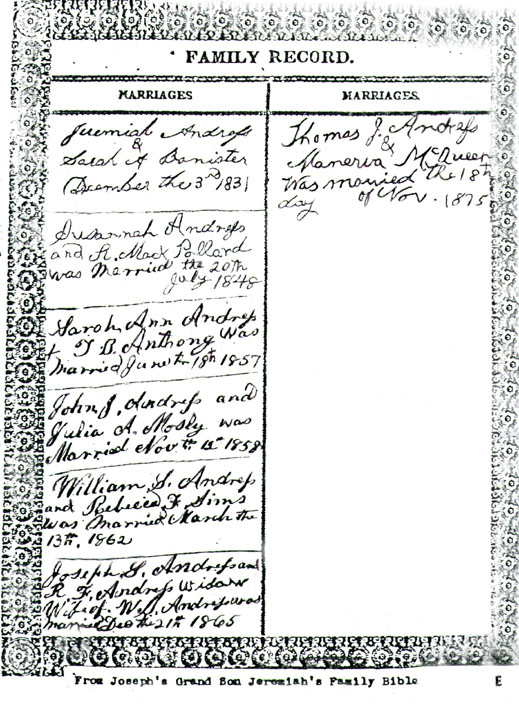 FAMILY RECORD.
MARRIAGES
Jeremiah Andress
&
Sarah A Banister
December the 3rd 1831
Susannah Andress
and R. Mack Pollard
was Married the 20th
July 1848
Sarah Ann Andress
& T B. Anthony was
Married June the 18th 1857
John J. Andress and
Julia A. Mosly was
Married Novth 1858
William S. Andress
and Rebecca F. Sims
was Married March the
13th, 1862
Joseph S. Andress and
R F. Andress
Wife of Wm. Andress was
married Dec the 21th 1865
MARRIAGES
Thomas J. Andress
&
Manerva McQueen
was married the 18th
day of Nov. 1875
From Joseph's Grand Son Jeremiah's Family Bible
E